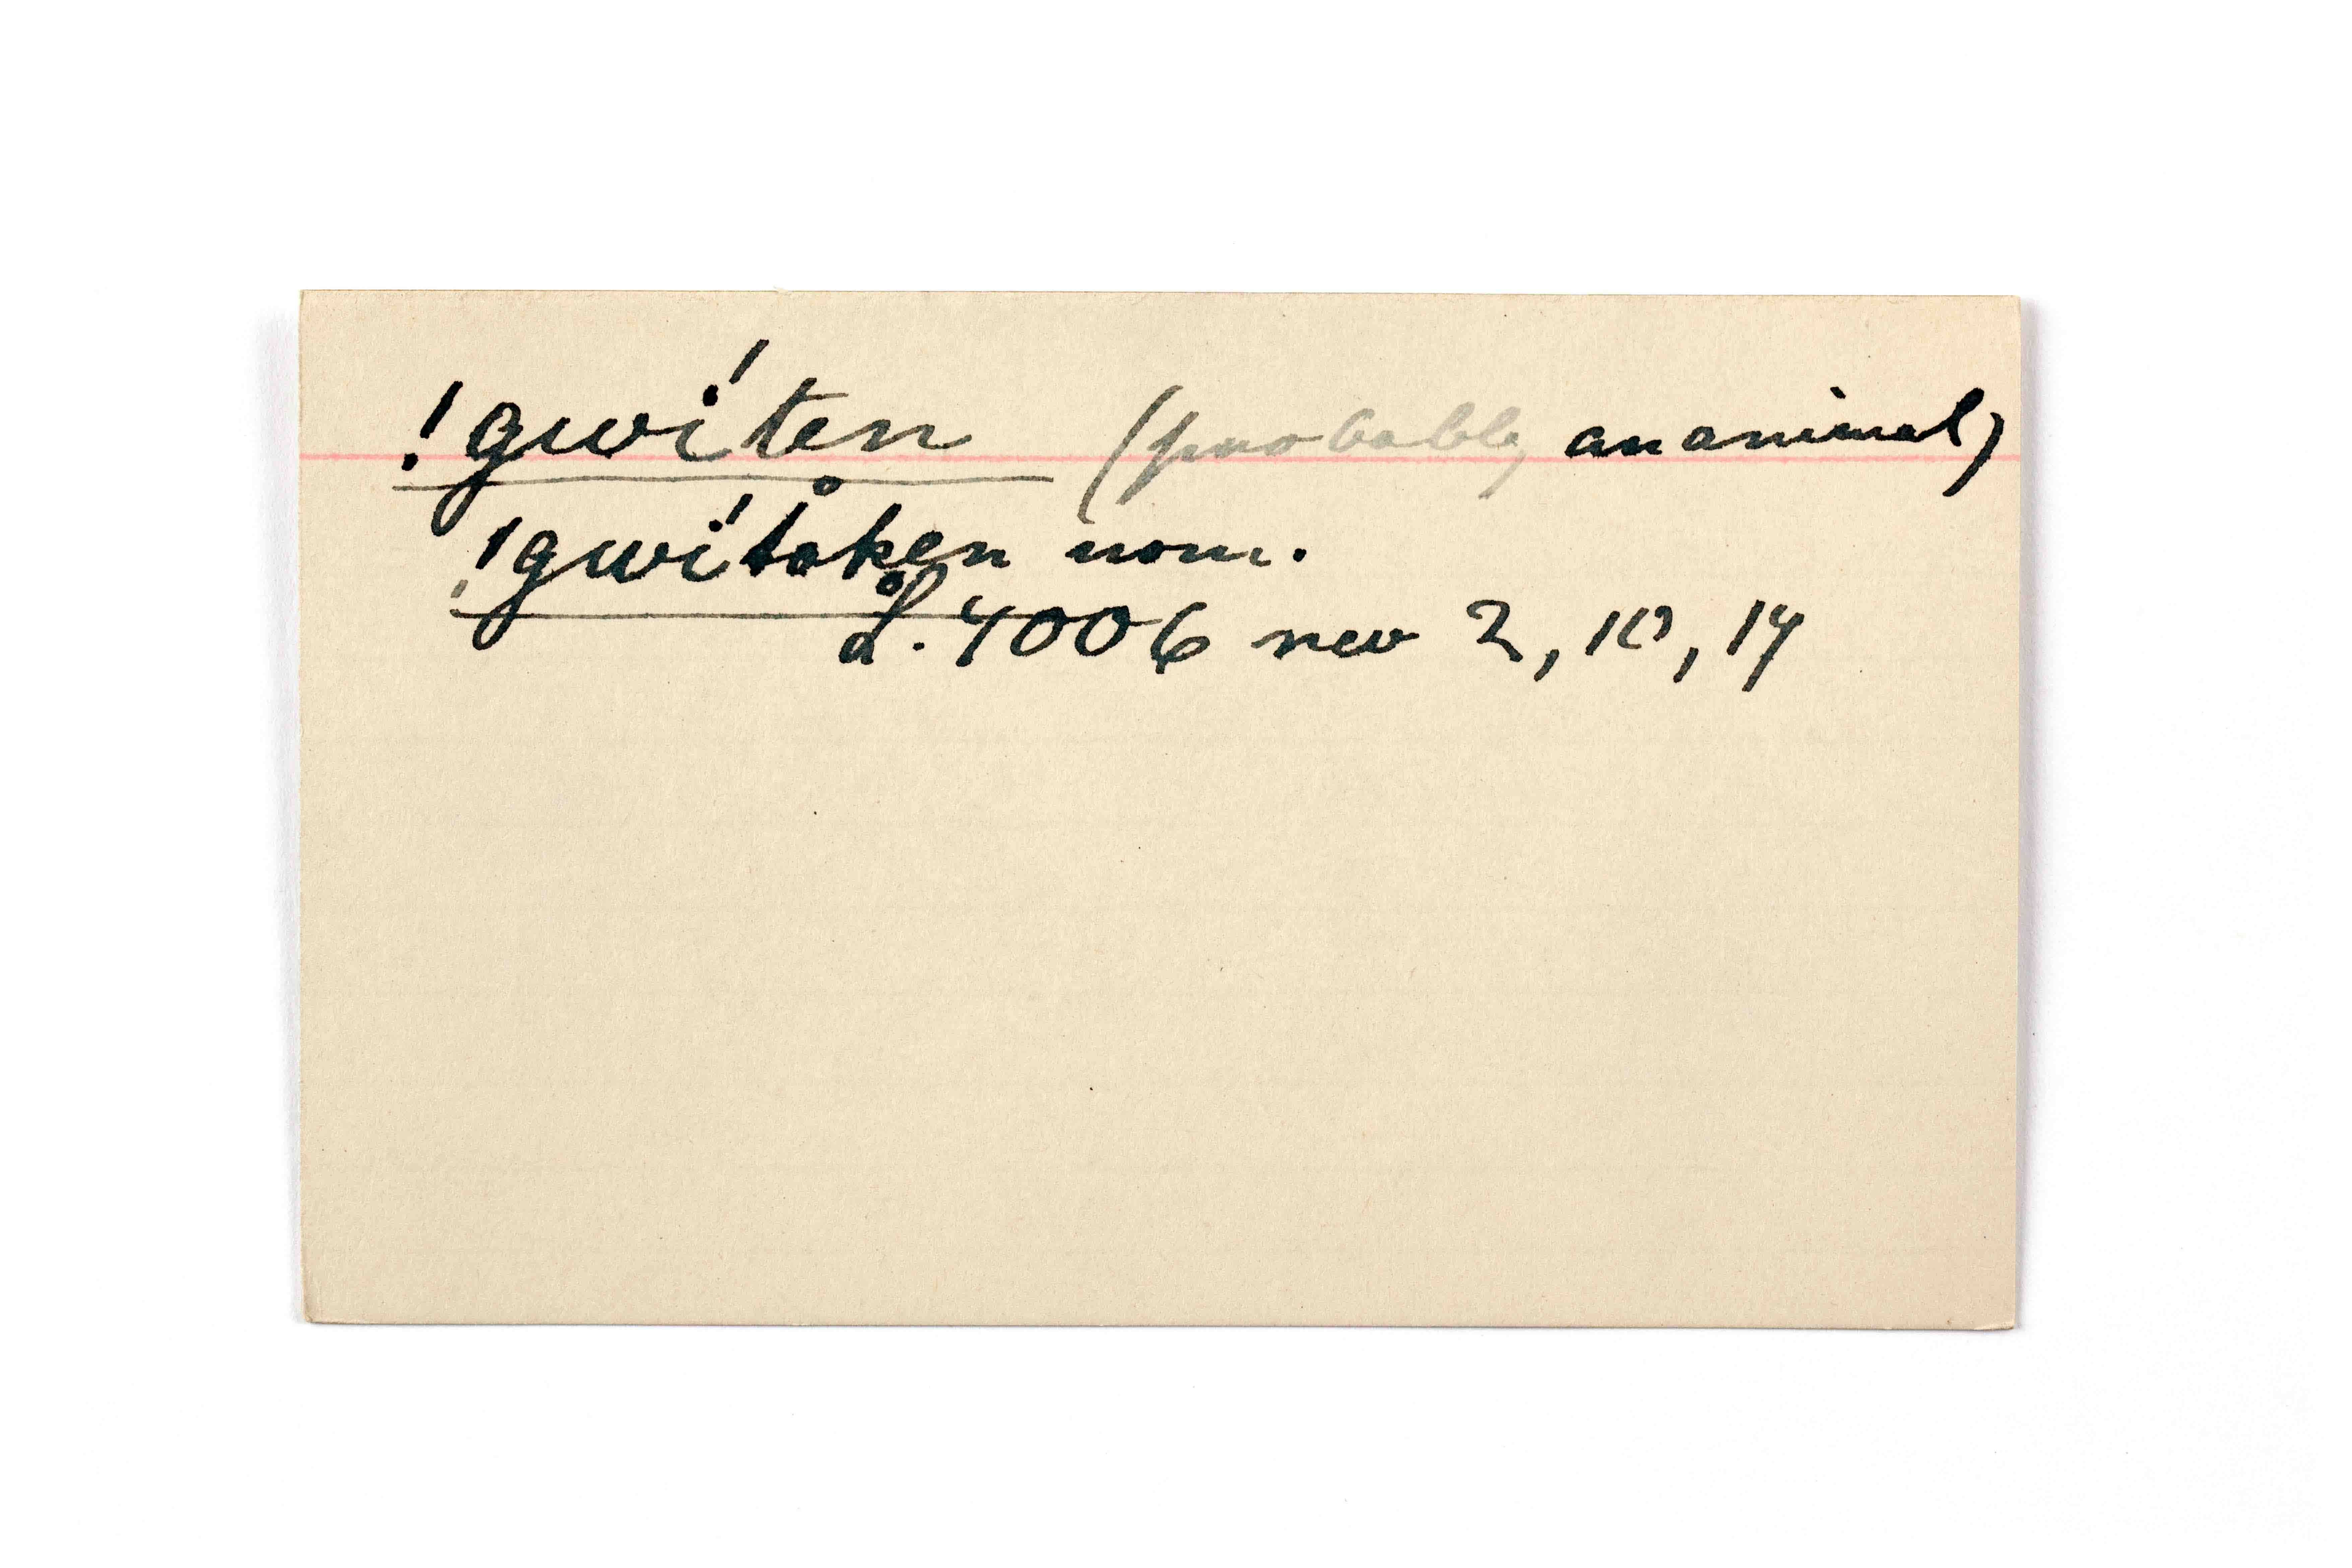 !gwíte̥n (probably an animal)
!gwítake̥n nom.
L. 4006 rev 2, 10, 14